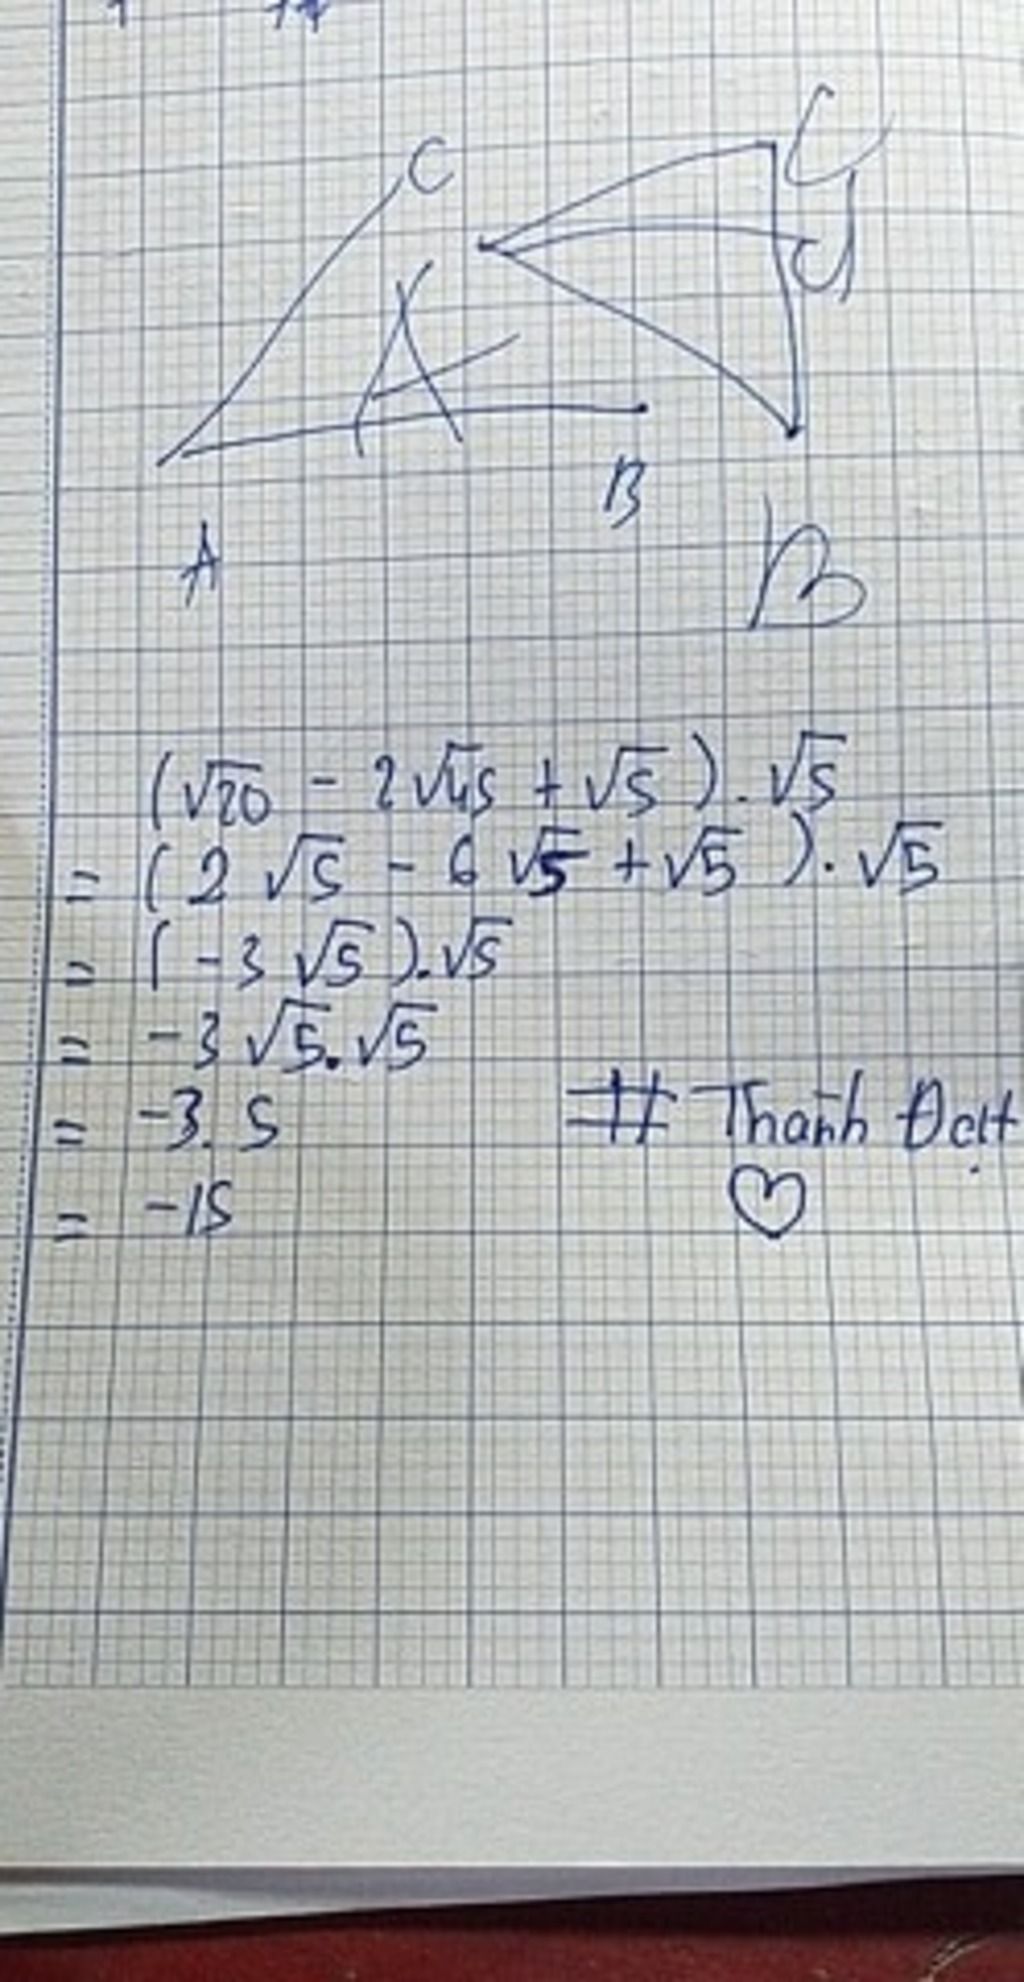 C
A
B
A
B
(√20 - 2√45 + √5). √5
= (2√5 - 6√5 + √5). √5
= (-3√5).√5
= -3√5.√5
= -3.5
# Thành Đạt
= -15
♡